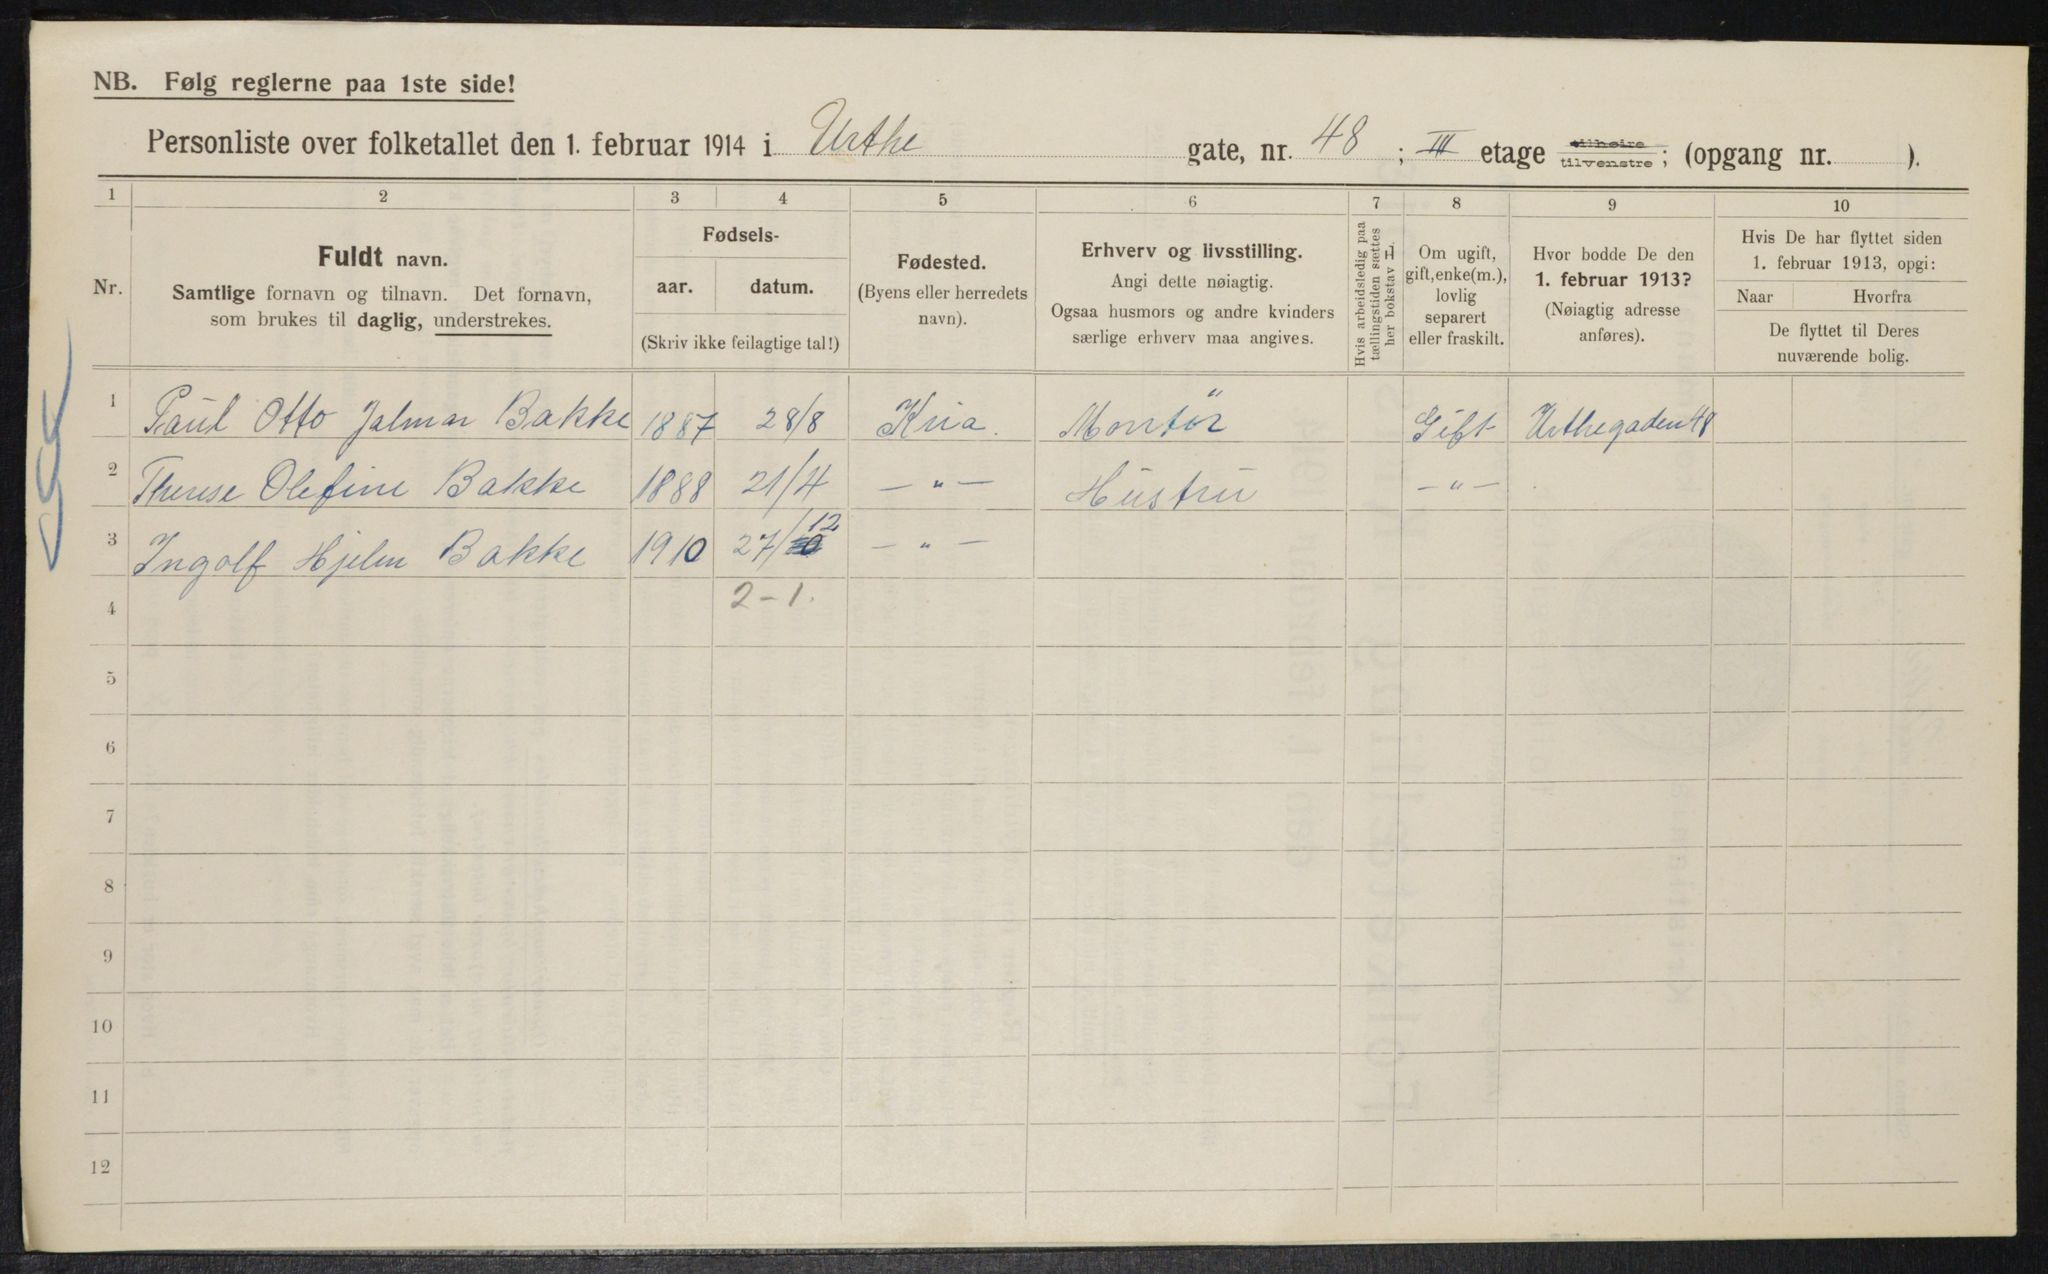 NB. Følg reglerne paa 1ste side!
Personliste over folketallet den 1. februar 1914 i Urthe gate, nr. 48 ; III etage tilhøire tilvenstre ; (opgang nr. ).
1 2 3 4 5 6 7 8 9 10
Nr.
Fuldt navn.
Samtlige fornavn og tilnavn. Det fornavn,
som brukes til daglig, understrekes.
Fødsels-
aar. datum.
(Skriv ikke feilagtige tal!)
Fødested.
(Byens eller herredets
navn).
Erhverv og livsstilling.
Angi dette nøiagtig.
Ogsaa husmors og andre kvinders
særlige erhverv maa angives.
Hvis arbeidsledig paa
tællingstiden sættes
her bokstav L.
Om ugift,
gift, enke(m.),
lovlig
separert
eller fraskilt.
Hvor bodde De den
1. februar 1913?
(Nøiagtig adresse
anføres).
Hvis De har flyttet siden
1. februar 1913, opgi:
Naar Hvorfra
De flyttet til Deres
nuværende bolig.
1 Paul Otto Jalmar Bakke 1887 28/8 Kria. Montör Gift Urthegaden 48
2 Therese Olefine Bakke 1888 21/4 — " — Hustru — " —
3 Ingolf Hjelm Bakke 1910 27/12 — " —
4 2-1.
5
6
7
8
9
10
11
12